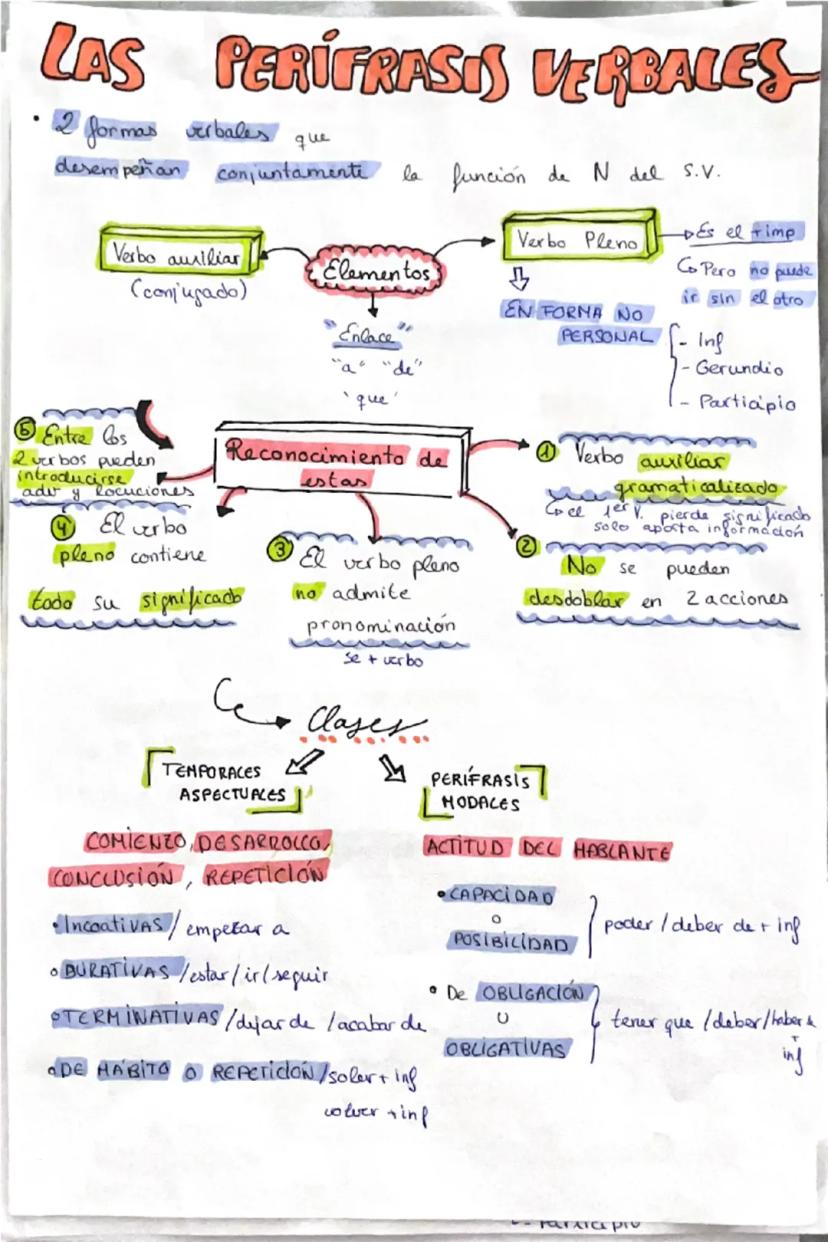 LAS PERÍFRASIS VERBALES
• 2 formas verbales que
desempeñan conjuntamente la función de N del S.V.
Verbo auxiliar
(conjugado)
Elementos
"Enlace"
"a" "de"
'que'
Verbo Pleno
Es el + imp
Pero no puede
ir sin el otro
EN FORMA NO
PERSONAL
- Inf
- Gerundio
- Participio
Reconocimiento de
estas
1 Verbo auxiliar
gramaticalizado
el 1er V. pierde significado
solo aporta información
2 No se pueden
desdoblar en 2 acciones
3 El verbo pleno
no admite
pronominación
se + verbo
4 El verbo
pleno contiene
todo su significado
5 Entre los
2 verbos pueden
introducirse
adv y locuciones
Clases
TEMPORALES
ASPECTUALES
COMIENZO, DESARROLLO,
CONCLUSIÓN, REPETICIÓN
• INCOATIVAS / empezar a
• DURATIVAS / estar / ir / seguir
• TERMINATIVAS / dejar de / acabar de
• DE HÁBITO O REPETICIÓN / soler + inf
volver + inf
PERÍFRASIS
MODALES
ACTITUD DEL HABLANTE
• CAPACIDAD
o
POSIBILIDAD
poder / deber de + inf
• De OBLIGACIÓN
U
OBLIGATIVAS
tener que / deber / haber de
+
inf
- Participio